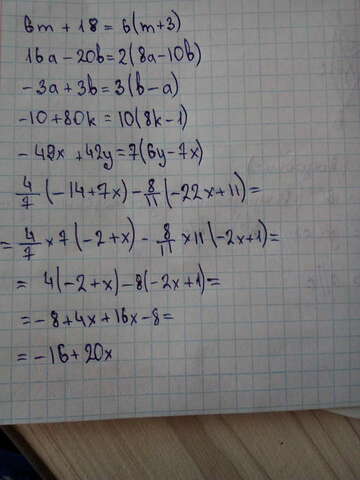 6m + 18 = 6(m+3)
16a - 20b = 2(8a-10b)
-3a + 3b = 3(b-a)
-10 + 80k = 10(8k-1)
-49x + 42y = 7(6y-7x)
4/7 (-14+7x) - 8/11 (-22x+11) =
= 4/7 × 7(-2+x) - 8/11 × 11(-2x+1) =
= 4(-2+x) - 8(-2x+1) =
= -8+4x+16x-8 =
= -16+20x